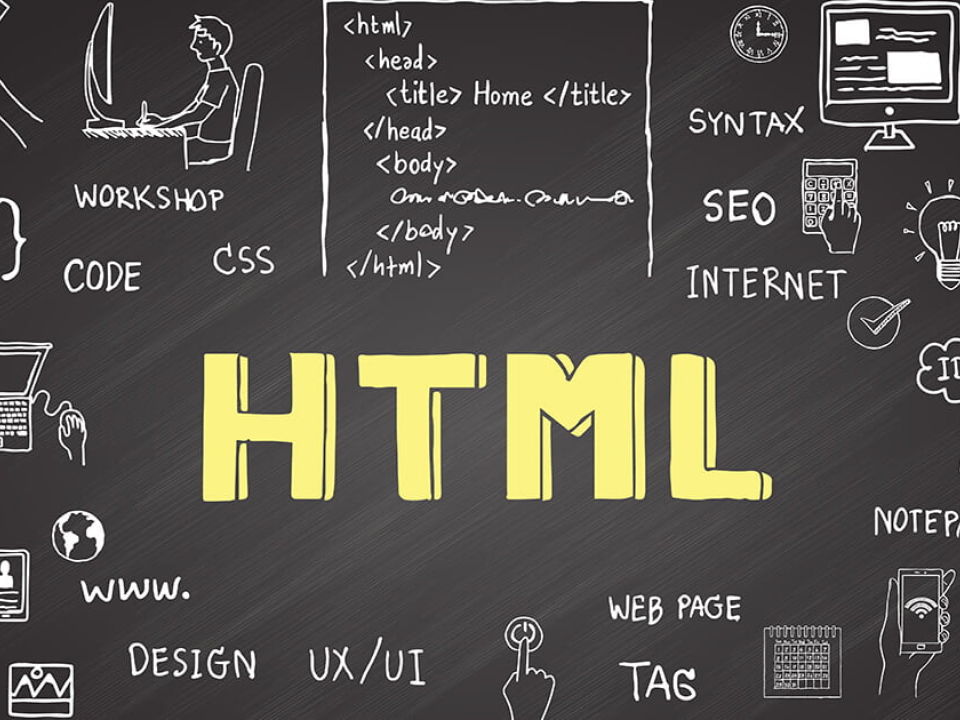 <html>
<head>
<title> Home </title>
</head>
<body>
</body>
</html>
WORKSHOP
CODE
CSS
SYNTAX
SEO
INTERNET
HTML
WWW.
DESIGN
UX/UI
WEB PAGE
TAG